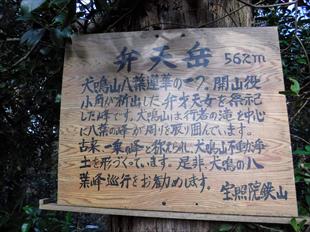 弁天岳 562m
犬鳴山八葉蓮華の一つ。開山役
小角が祈出した弁才天女を祭祀し
た峰です。犬鳴山は行者の滝を中心
に八葉の峰が周りを取り囲んでいます。
古来一乗峰と称えられ、犬鳴山不動が浄
土を形づくっています。是非、犬鳴の八
葉峰巡行をお勧めします。
宝照院狭山